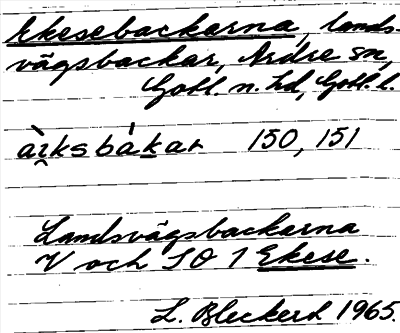 Ekesebackarna, lands-
vägsbackar, Ardre sn,
Gotl. n. hd, Gotl. l.
àı̯ksbákar 150, 151
Landsvägsbackarna
V och SO 1 Ekese.
L. Bleckert 1965.